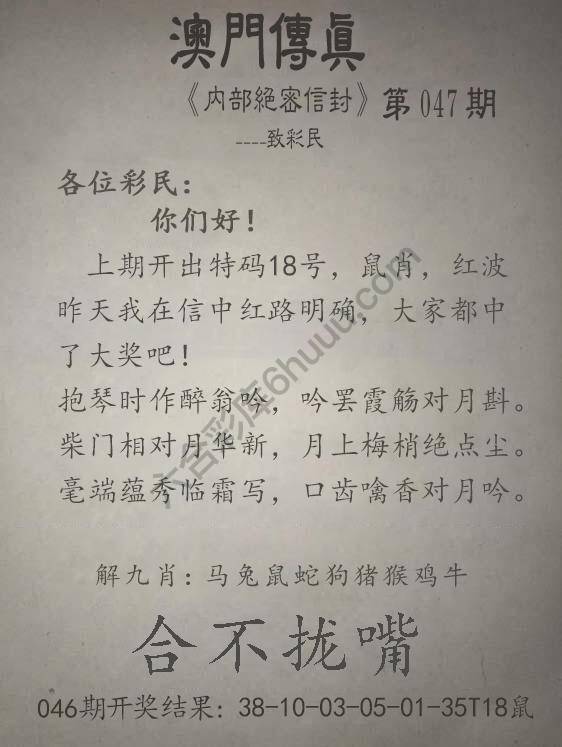 澳門傳眞
《内部絕密信封》第047期
----致彩民
各位彩民：
你们好！
上期开出特码18号，鼠肖，红波
昨天我在信中红路明确，大家都中
了大奖吧！
抱琴时作醉翁吟，吟罢霞觞对月斟。
柴门相对月华新，月上梅梢绝点尘。
毫端蕴秀临霜写，口齿噙香对月吟。
六合彩库6huuu.com
解九肖：马兔鼠蛇狗猪猴鸡牛
合不拢嘴
046期开奖结果：38-10-03-05-01-35T18鼠